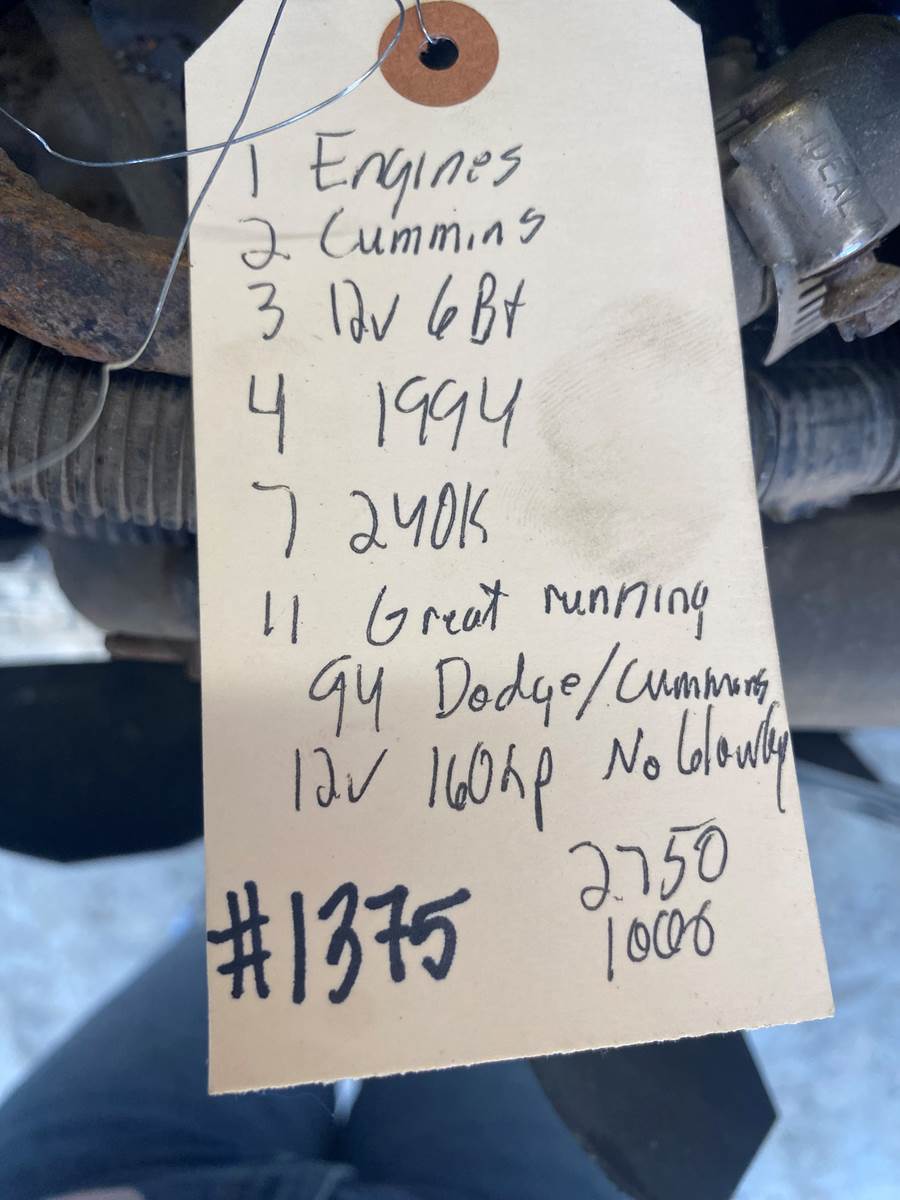 1 Engines
2 Cummins
3 12v 6Bt
4 1994
7 240K
11 Great running
94 Dodge/Cummins
12v 160hp No blowby
2750
#1375
1006
IDEAL